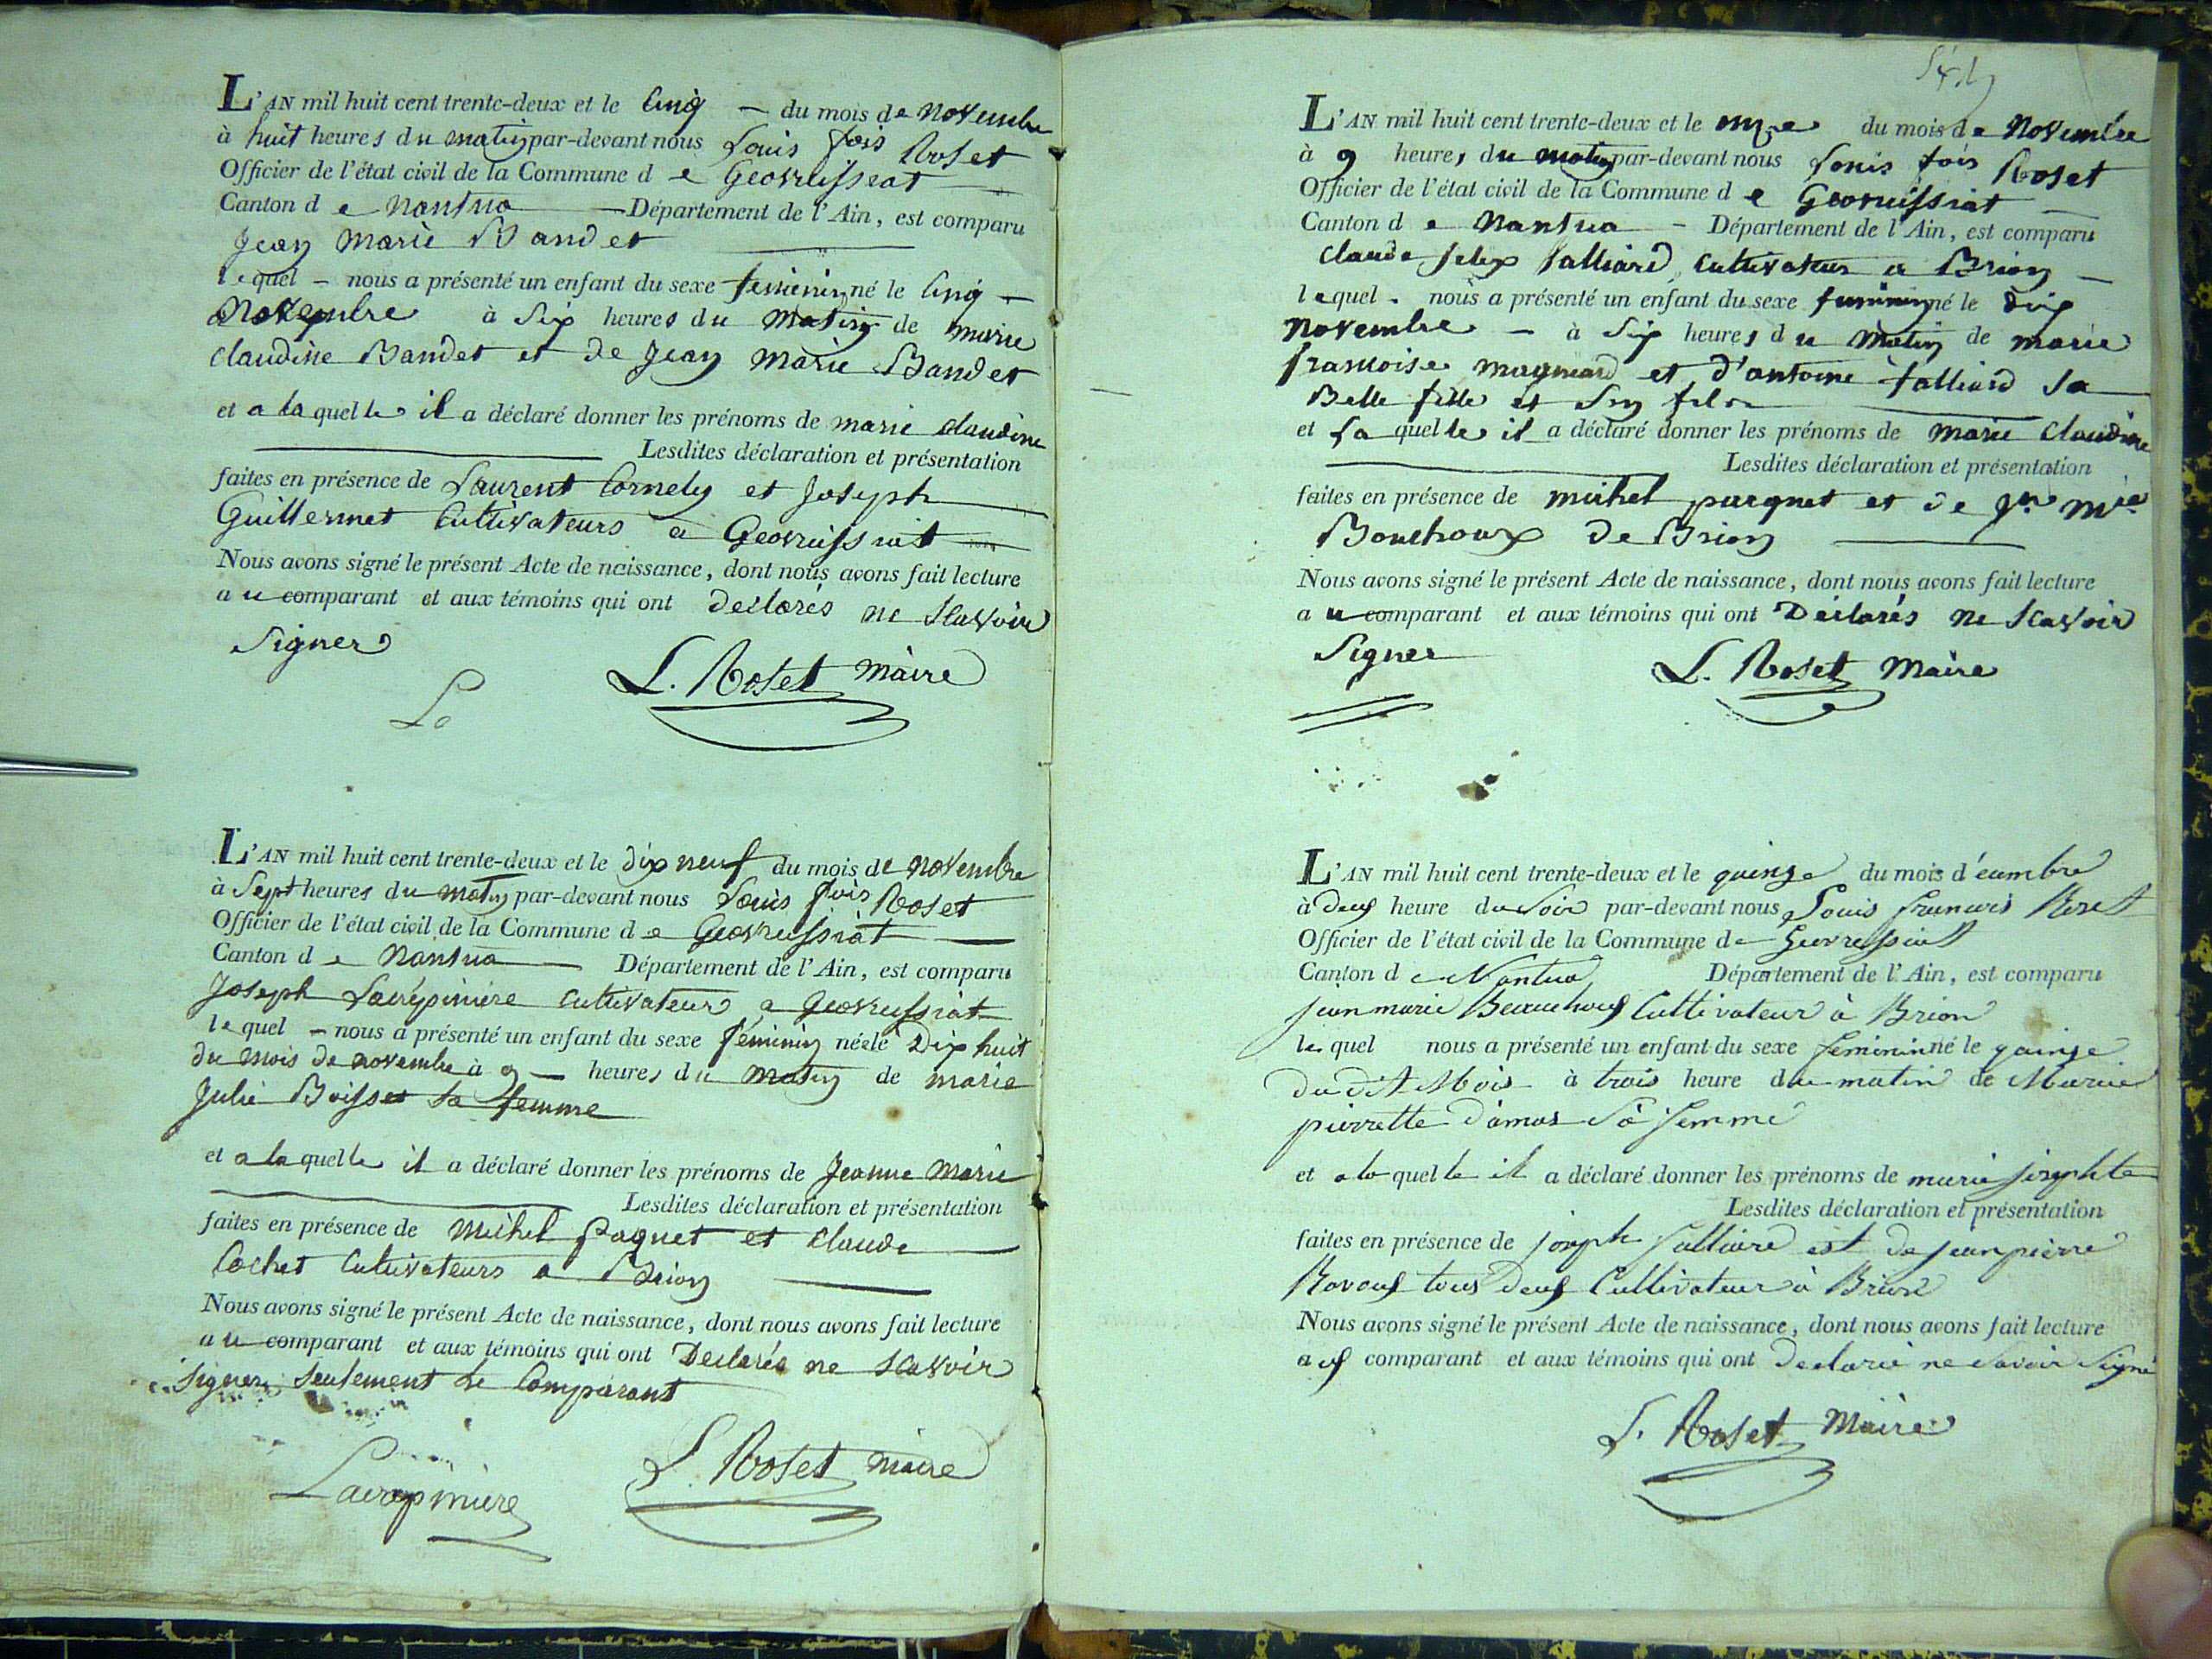 L'AN mil huit cent trente-deux et le cinq — du mois de novembre
à huit heures du matin par-devant nous Louis fois Roset
Officier de l'état civil de la Commune d e Geovreissiat
Canton d e Nantua — Département de l'Ain, est comparu
Jean Marie Bandet
lequel – nous a présenté un enfant du sexe feminin né le cinq —
novembre à Six heures du matin de marie
claudine Bandet et de Jean Marie Bandet
et a la quelle il a déclaré donner les prénoms de marie claudine
Lesdites déclaration et présentation
faites en présence de Laurent Cornely et Joseph
Guillermet Cultivateurs a Geovreissiat
Nous avons signé le présent Acte de naissance, dont nous avons fait lecture
a u comparant et aux témoins qui ont declarés ne scavoir
Signer
L. Roset maire
L'AN mil huit cent trente-deux et le dix neuf du mois de novembre
à Sept heures du matin par-devant nous Louis fois Roset
Officier de l'état civil de la Commune d e Geovreissiat
Canton d e Nantua — Département de l'Ain, est comparu
Joseph Lacrépinière cultivateur a Geovreissiat
lequel – nous a présenté un enfant du sexe féminin née le Dix huit
du mois de novembre à 9 — heures du matin de marie
Julie Boisset sa femme
et a la quelle il a déclaré donner les prénoms de Jeanne Marie
Lesdites déclaration et présentation
faites en présence de Michel Paquet et Claude
Cochet Cultivateurs a Brion
Nous avons signé le présent Acte de naissance, dont nous avons fait lecture
a u comparant et aux témoins qui ont Declarés ne scavoir
signer, seulement le Comparant
Lacrepiniere L. Roset maire
L'AN mil huit cent trente-deux et le onze du mois de Novembre
à 9 heures du matin par-devant nous Louis fois Roset
Officier de l'état civil de la Commune d e Geovreissiat
Canton d e Nantua – Département de l'Ain, est comparu
Claude felix falliard cultivateur a Brion —
lequel . nous a présenté un enfant du sexe feminin né le dix
novembre — à Six heures d u Matin de marie
francoise maynard et d'antoine falliard sa
Belle fille et son fils
et la quelle il a déclaré donner les prénoms de marie Claudine
Lesdites déclaration et présentation
faites en présence de michel parquet et de Jn Mie
Bouchoux de Brion
Nous avons signé le présent Acte de naissance, dont nous avons fait lecture
a u comparant et aux témoins qui ont Déclarés ne scavoir
Signer
L. Roset Maire
L'AN mil huit cent trente-deux et le quinze du mois d'écembre
à deux heure du Soir par-devant nous Louis francois Roset
Officier de l'état civil de la Commune de Geovressiat
Canton d e Nantua Département de l'Ain, est comparu
jean marie Beauchoux Cultivateur à Brion
le quel nous a présenté un enfant du sexe feminin né le quinze
du dit Mois à trois heure du matin de Marie
pierrette damas Sa femme
et a la quelle il a déclaré donner les prénoms de marie josephte
Lesdites déclaration et présentation
faites en présence de joseph falliard est de jean pierre
tous deux Cultivateur à Brion
Nous avons signé le présent Acte de naissance, dont nous avons fait lecture
aux comparant et aux témoins qui ont declaré ne savoir Signé
L. Roset Maire